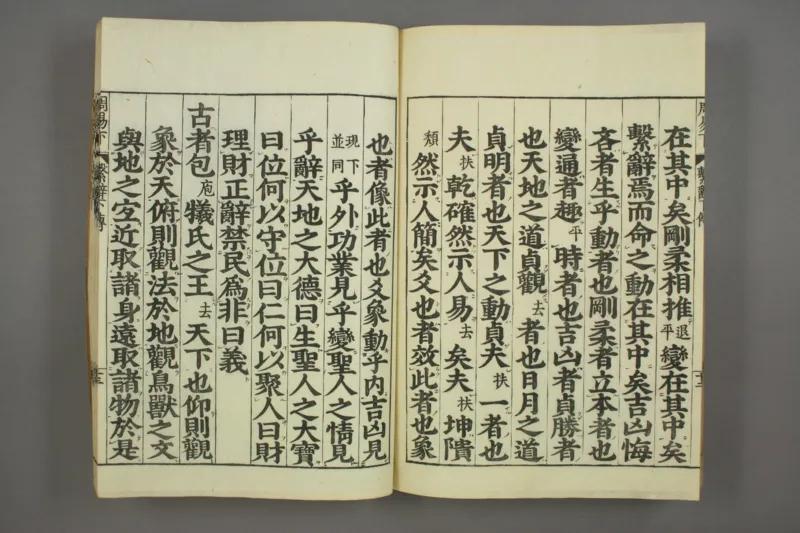 在其中矣剛柔相推退平變在其中矣
繫辭焉而命之動在其中矣吉凶悔
吝者生乎動者也剛柔者立本者也
變通者趣平時者也吉凶者貞勝者
也天地之道貞觀去者也日月之道
貞明者也天下之動貞夫扶一者也
夫扶乾確然示人易去矣夫扶坤隤
頹然示人簡矣爻也者效此者也象
也者像此者也爻象動乎內吉凶見
現下並同乎外功業見乎變聖人之情見
乎辭天地之大德曰生聖人之大寶
曰位何以守位曰仁何以聚人曰財
理財正辭禁民為非曰義
古者包庖犧氏之王去天下也仰則觀
象於天俯則觀法於地觀鳥獸之文
與地之宜近取諸身遠取諸物於是
周易下
繫辭下傳